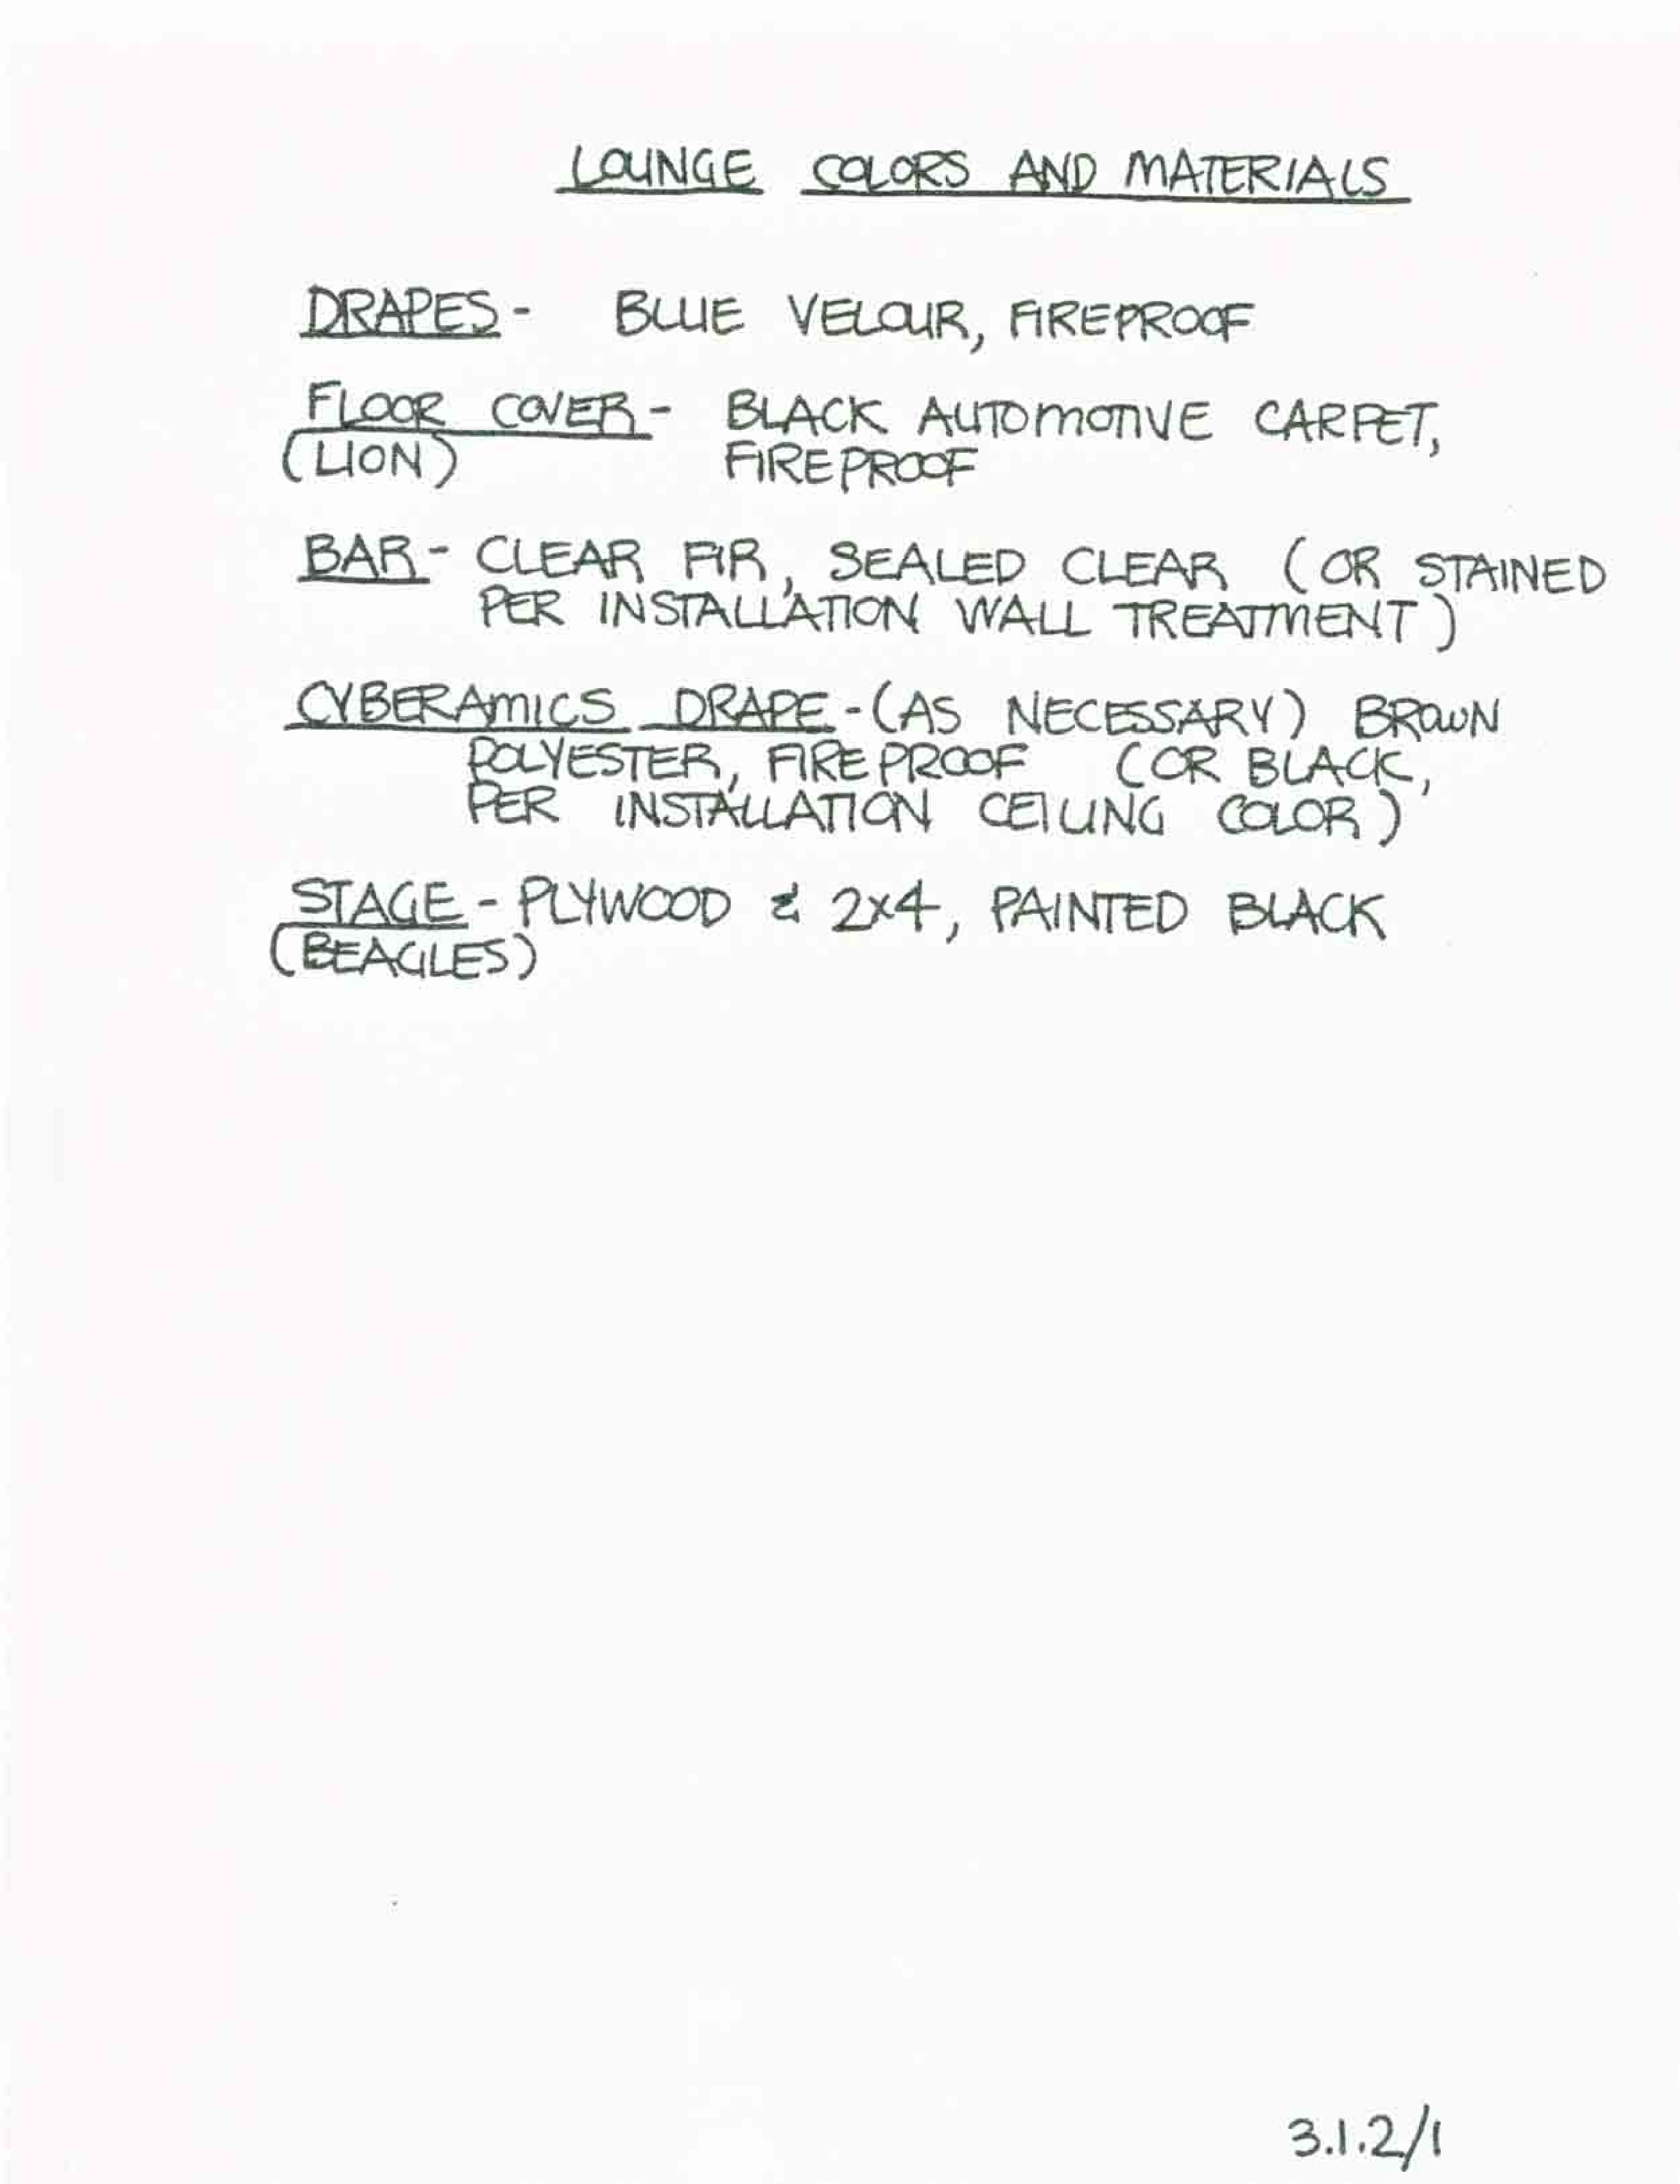 LOUNGE COLORS AND MATERIALS
DRAPES - BLUE VELOUR, FIREPROOF
FLOOR COVER - BLACK AUTOMOTIVE CARPET,
(LION) FIREPROOF
BAR - CLEAR FIR, SEALED CLEAR (OR STAINED
PER INSTALLATION WALL TREATMENT)
CYBERAMICS DRAPE - (AS NECESSARY) BROWN
POLYESTER, FIREPROOF (OR BLACK,
PER INSTALLATION CEILING COLOR)
STAGE - PLYWOOD & 2x4, PAINTED BLACK
(BEAGLES)
3.1.2/1